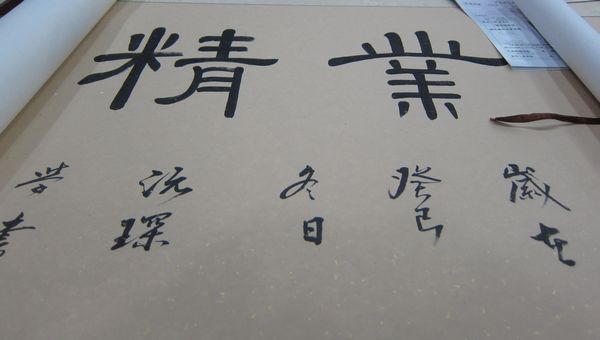 業精
嵗在
癸巳
冬日
沅琛
学書